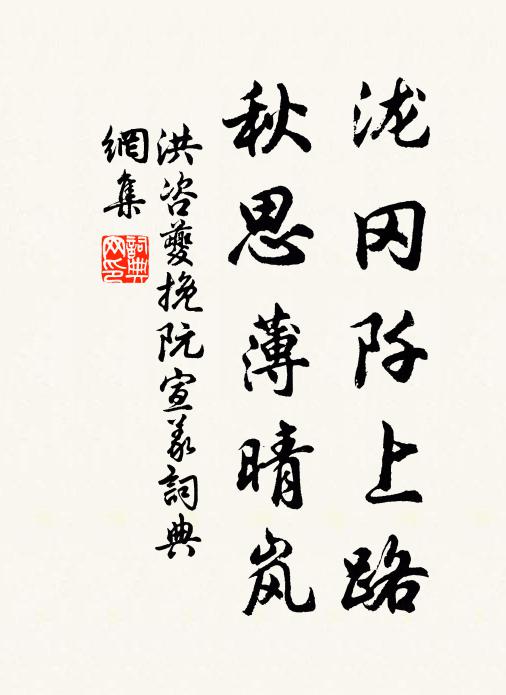 泷冈阡上路
秋思薄晴岚
洪咨夔挽阮宣義詞典
網集
詞典网印